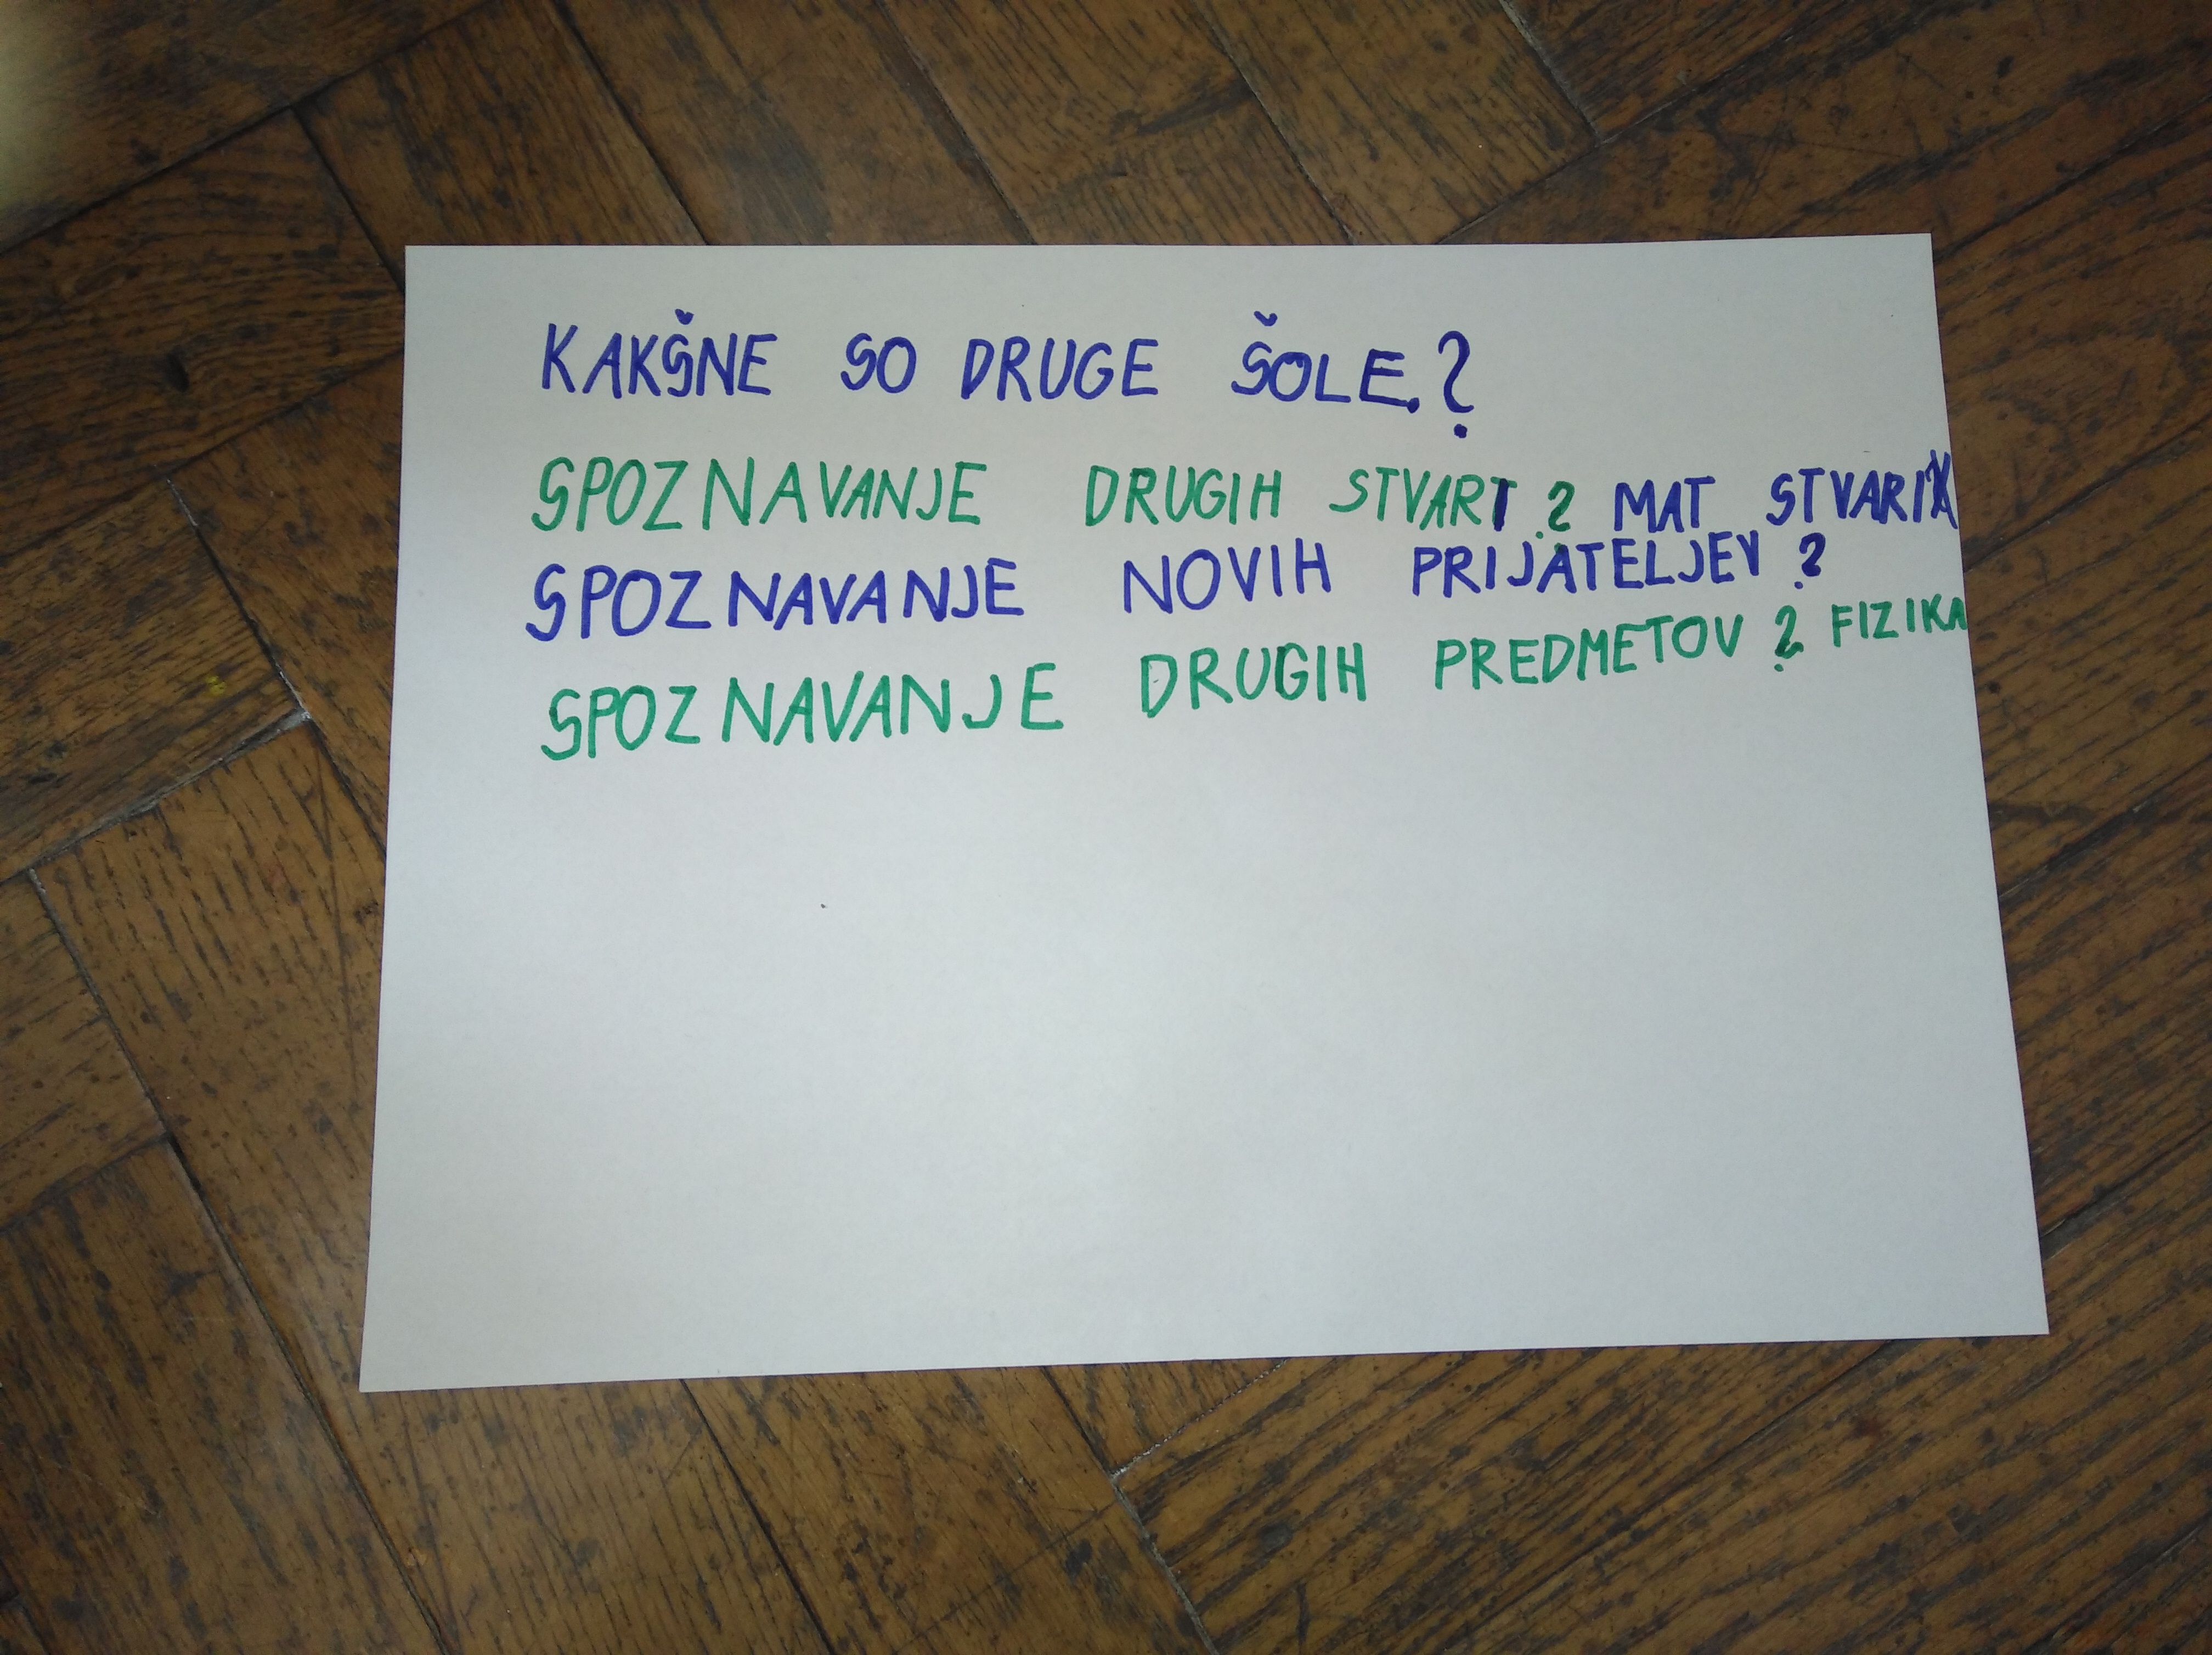 KAKŠNE SO DRUGE ŠOLE.?
SPOZNAVANJE DRUGIH STVARI? MAT STVARI
SPOZNAVANJE NOVIH PRIJATELJEV?
SPOZNAVANJE DRUGIH PREDMETOV? FIZIKA